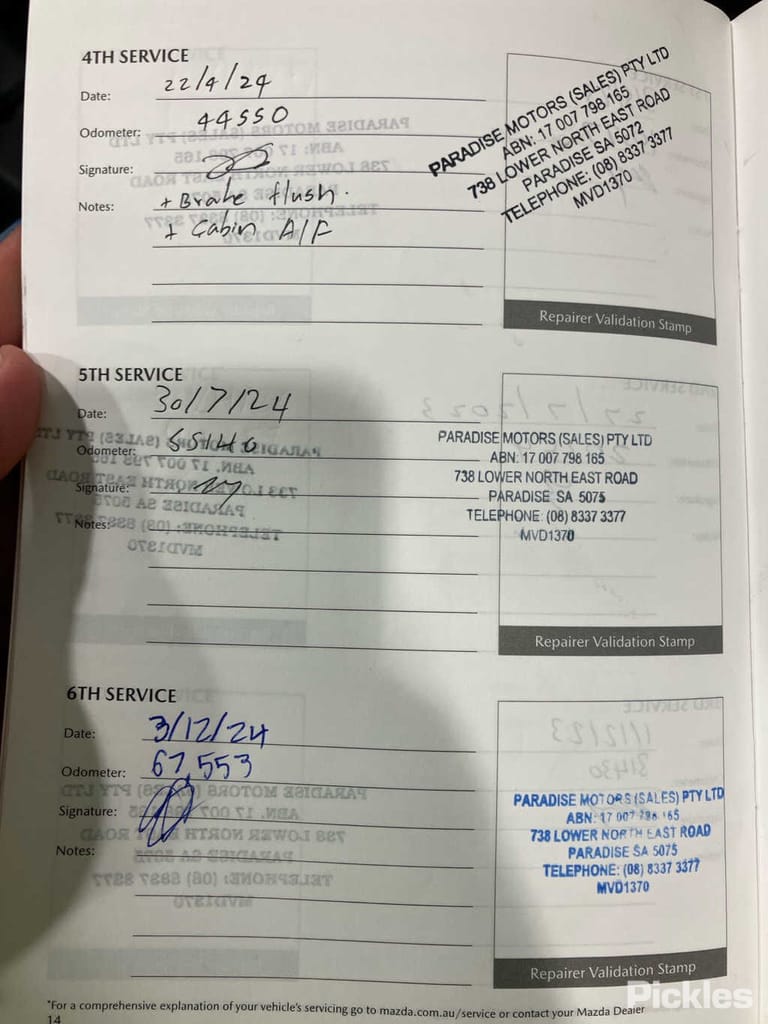 4TH SERVICE
Date: 22/4/24
Odometer: 44550
Signature:
Notes: + Brake flush.
+ Cabin A/F
PARADISE MOTORS (SALES) PTY LTD
ABN: 17 007 798 165
738 LOWER NORTH EAST ROAD
PARADISE SA 5072
TELEPHONE: (08) 8337 3377
MVD1370
Repairer Validation Stamp
5TH SERVICE
Date: 30/7/24
Odometer: 55140
Signature:
Notes:
PARADISE MOTORS (SALES) PTY LTD
ABN: 17 007 798 165
738 LOWER NORTH EAST ROAD
PARADISE SA 5075
TELEPHONE: (08) 8337 3377
MVD1370
Repairer Validation Stamp
6TH SERVICE
Date: 3/12/24
Odometer: 67,553
Signature:
Notes:
PARADISE MOTORS (SALES) PTY LTD
ABN: 17 007 798 165
738 LOWER NORTH EAST ROAD
PARADISE SA 5075
TELEPHONE: (08) 8337 3377
MVD1370
Repairer Validation Stamp
*For a comprehensive explanation of your vehicle's servicing go to mazda.com.au/service or contact your Mazda Dealer
14
Pickles